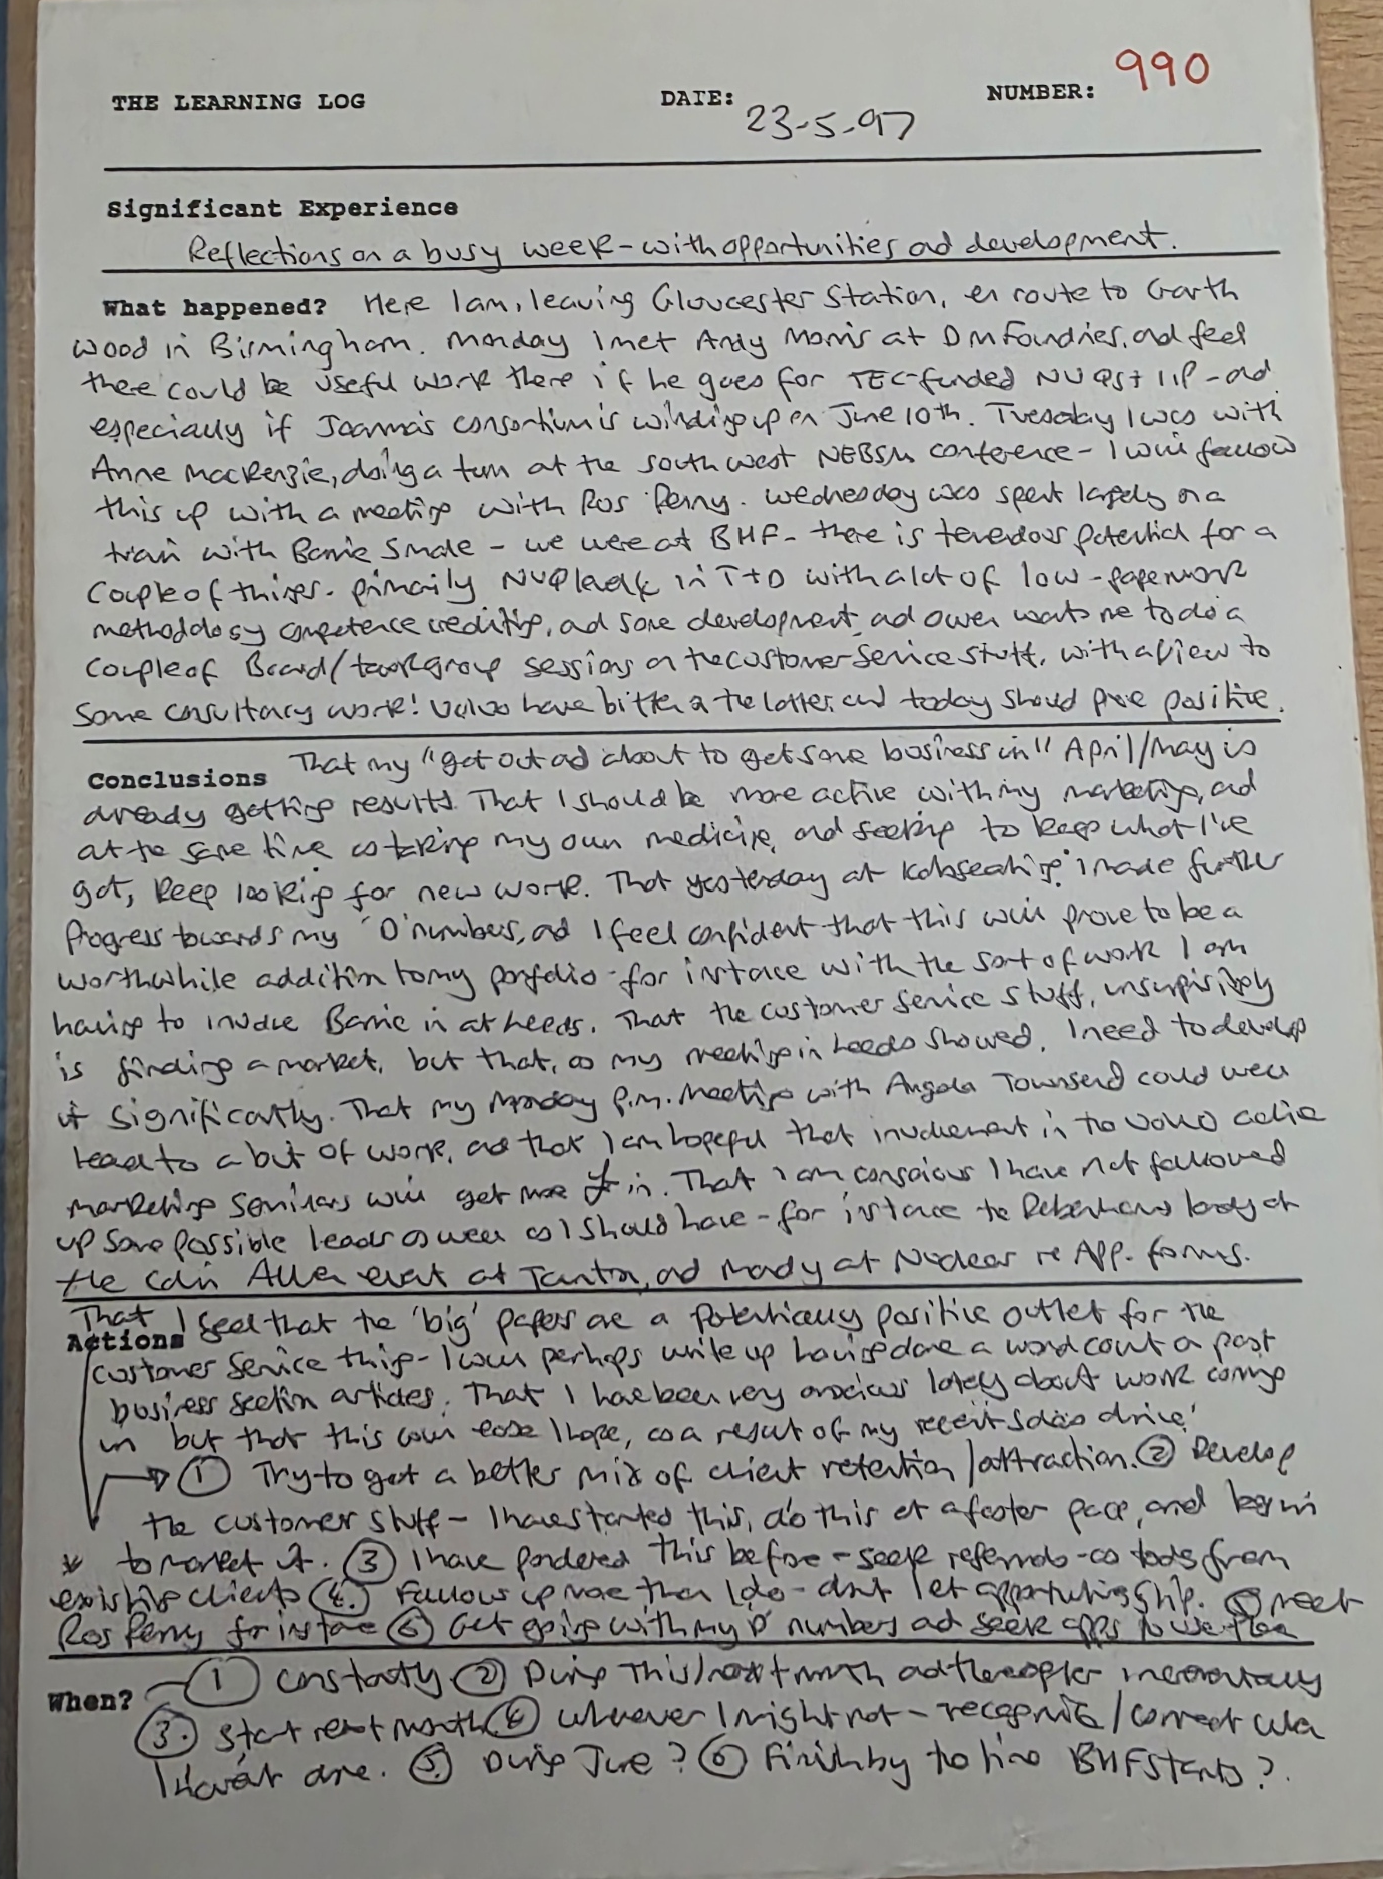 THE LEARNING LOG DATE: 23-5-97 NUMBER: 990
Significant Experience
Reflections on a busy week - with opportunities ad development.
What happened? Here I am, leaving Gloucester Station, en route to Garth
Wood in Birmingham. Monday I met Andy Morris at DM Foundries, ad feel
there could be useful work there if he goes for TEC-funded NVQs + IIP - ad
especially if Joanna's consortium is winding up on June 10th. Tuesday I was with
Anne MacKenzie, doing a turn at the South West NEBSM conference - I will follow
this up with a meeting with Ros Perry. Wednesday was spent largely on a
train with Barrie Smale - we were at BHF - there is tremendous potential for a
couple of things. Primarily NVQ level 4 in T+D with a lot of low-paperwork
methodology competence crediting, ad some development, ad Owen wants me to do a
couple of Board/ group sessions on the customer service stuff, with a view to
some consultancy work! Volvo have bitten on the latter, and today should prove positive.
Conclusions That my "get out ad about to get some business in" April/May is
already getting results. That I should be more active with my marketing, ad
at the same time as taking my own medicine, ad seeking to keep what I've
got, keep looking for new work. That yesterday at I made further
progress towards my 'D' numbers, ad I feel confident that this will prove to be a
worthwhile addition to my portfolio - for instance with the sort of work I am
having to involve Barrie in at Leeds. That the customer service stuff, unsurprisingly
is finding a market, but that, as my meeting in Leeds showed, I need to develop
it significantly. That my Monday p.m. meeting with Angela Townsend could well
lead to a bit of work, ad that I am hopeful that involvement in the Volvo
marketing seminars will get me in. That I am conscious I have not followed
up some possible leads as well as I should have - for instance the Debenhams lady at
the Colin Allen event at Taunton, ad Mandy at Nuclear re App. forms.
That I feel that the 'big' papers are a potentially positive outlet for the
Actions customer service thing - I will perhaps write up having done a word count on past
business section articles. That I have been very anxious lately about work coming
in but that this will ease I hope, as a result of my recent 'sales drive'
① Try to get a better mix of client retention/attraction. ② Develop
the customer stuff - I have started this, do this at a faster pace, and begin
* to market it. ③ I have pondered this before - seek referrals from
existing clients ④ Follow up more than I do - don't let opportunities slip. ⑤ Meet
Ros Perry for instance ⑥ Get going with my 'D' numbers ad seek opps to use them
When? ① Constantly ② During this/next month ad thereafter incrementally
③ Start next month ④ Whenever I might not - recognise/correct when
I haven't done. ⑤ During June? ⑥ Finish by the time BHF starts?.